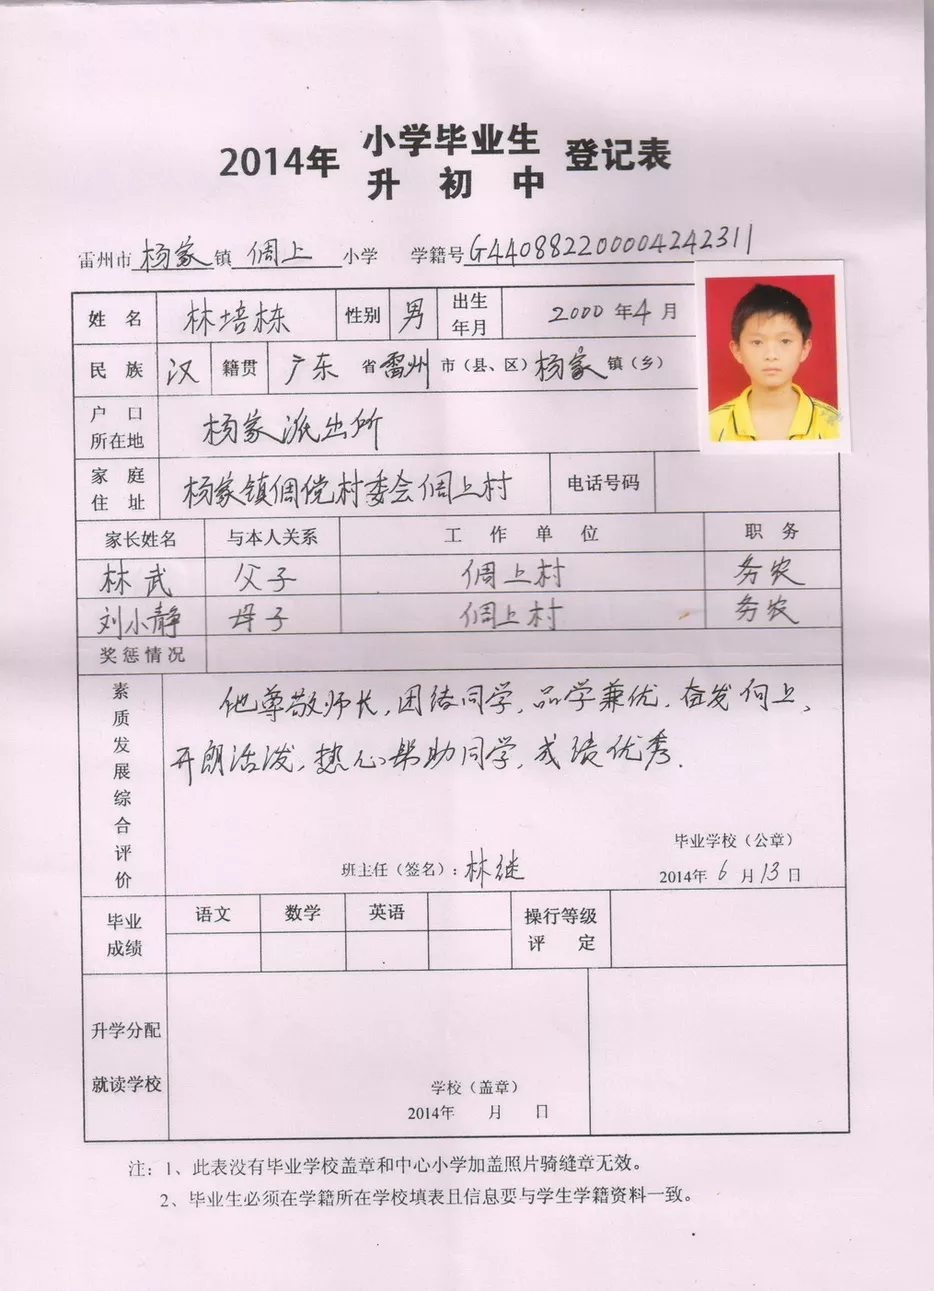 2014年 小学毕业生 登记表
升初中
雷州市杨家镇倜上小学 学籍号G440882200004242311
姓名 林培栋 性别 男 出生年月 2000年4月
民族 汉 籍贯 广东省雷州市(县、区)杨家镇(乡)
户口所在地 杨家派出所
家庭住址 杨家镇倜傥村委会倜上村 电话号码
家长姓名 与本人关系 工作单位 职务
林武 父子 倜上村 务农
刘小静 母子 倜上村 务农
奖惩情况
素质发展综合评价
他尊敬师长,团结同学,品学兼优,奋发向上,
开朗活泼,热心帮助同学,成绩优秀.
毕业学校(公章)
班主任(签名):林继 2014年6月13日
毕业成绩 语文 数学 英语 操行等级评定
升学分配
就读学校
学校(盖章)
2014年 月 日
注:1、此表没有毕业学校盖章和中心小学加盖照片骑缝章无效。
2、毕业生必须在学籍所在学校填表且信息要与学生学籍资料一致。